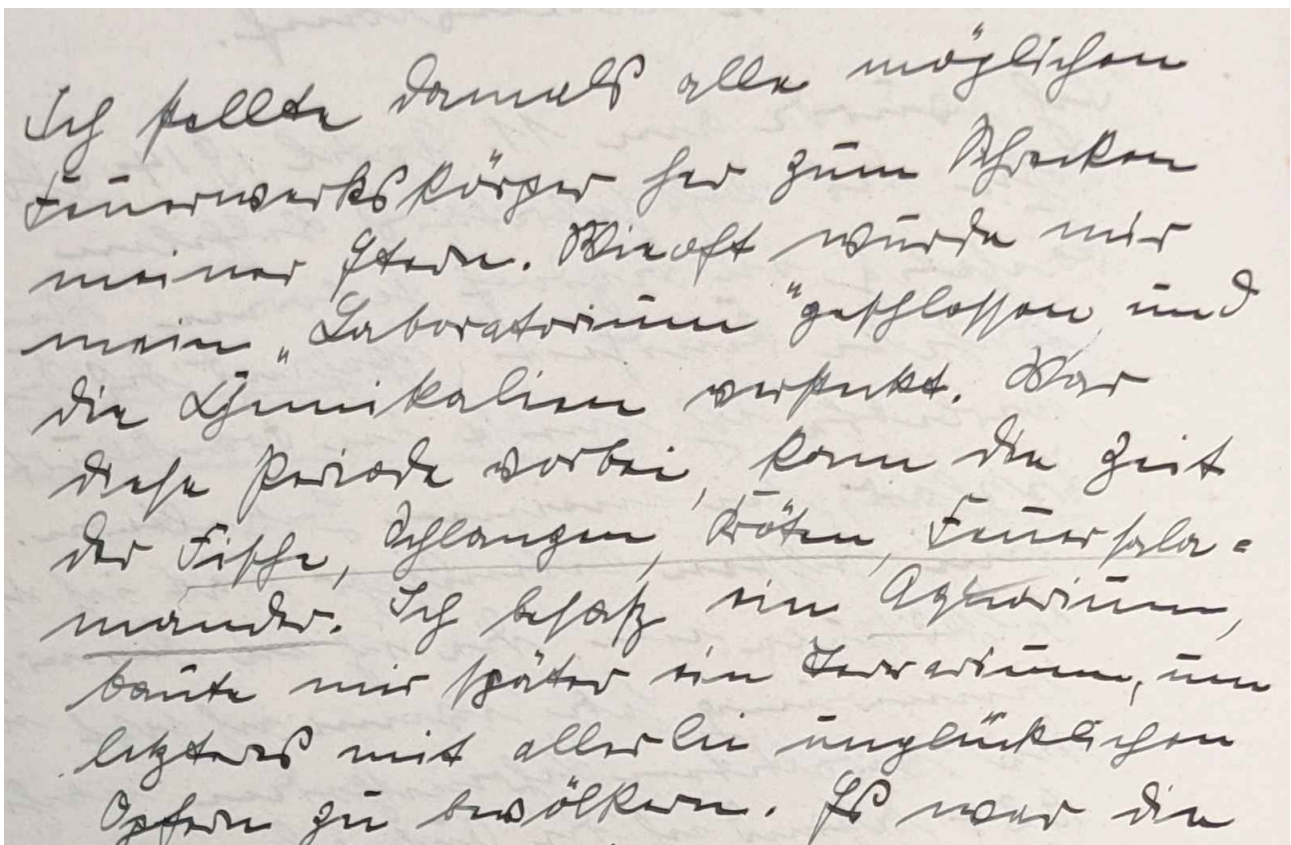 Ich stellte damals alle möglichen
Feuerwerkskörper her zum Schrecken
meiner Eltern. Wie oft wurde mir
mein „Laboratorium“ geschlossen, und
die Chemikalien versteckt. War
diese Periode vorbei, kam die Zeit
der Fische, Schlangen, Kröten, Feuersala=
mander. Ich besaß ein Aquarium,
baute mir später ein Terrarium, um
letzteres mit allerlei unglücklichen
Opfern zu bevölkern. Es war die